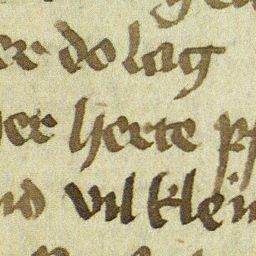 er do lag
er herte
nd vil klein